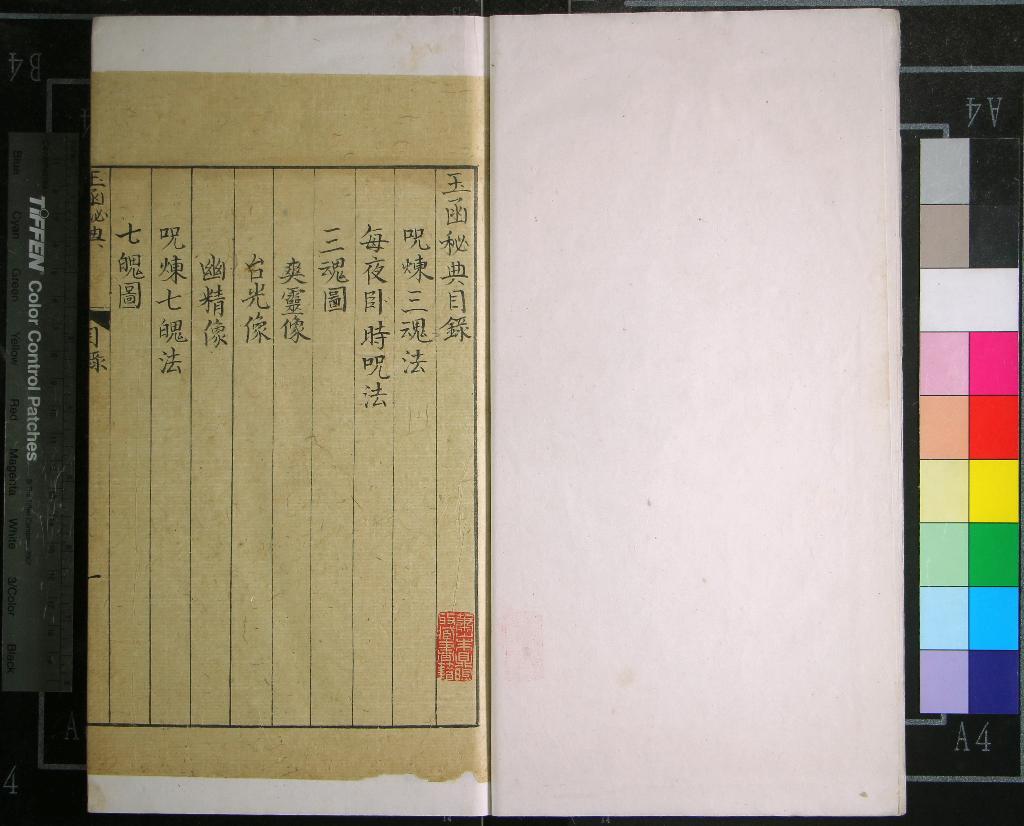 玉函秘典目錄
呪煉三魂法
每夜卧時呪法
三魂圖
爽靈像
台光像
幽精像
呪煉七魄法
七魄圖
玉函秘典
目錄
一
TIFFEN Color Control Patches
Blue
Cyan
Green
Yellow
Red
Magenta
White
3/Color
Black
B4
A4
A4
A
4